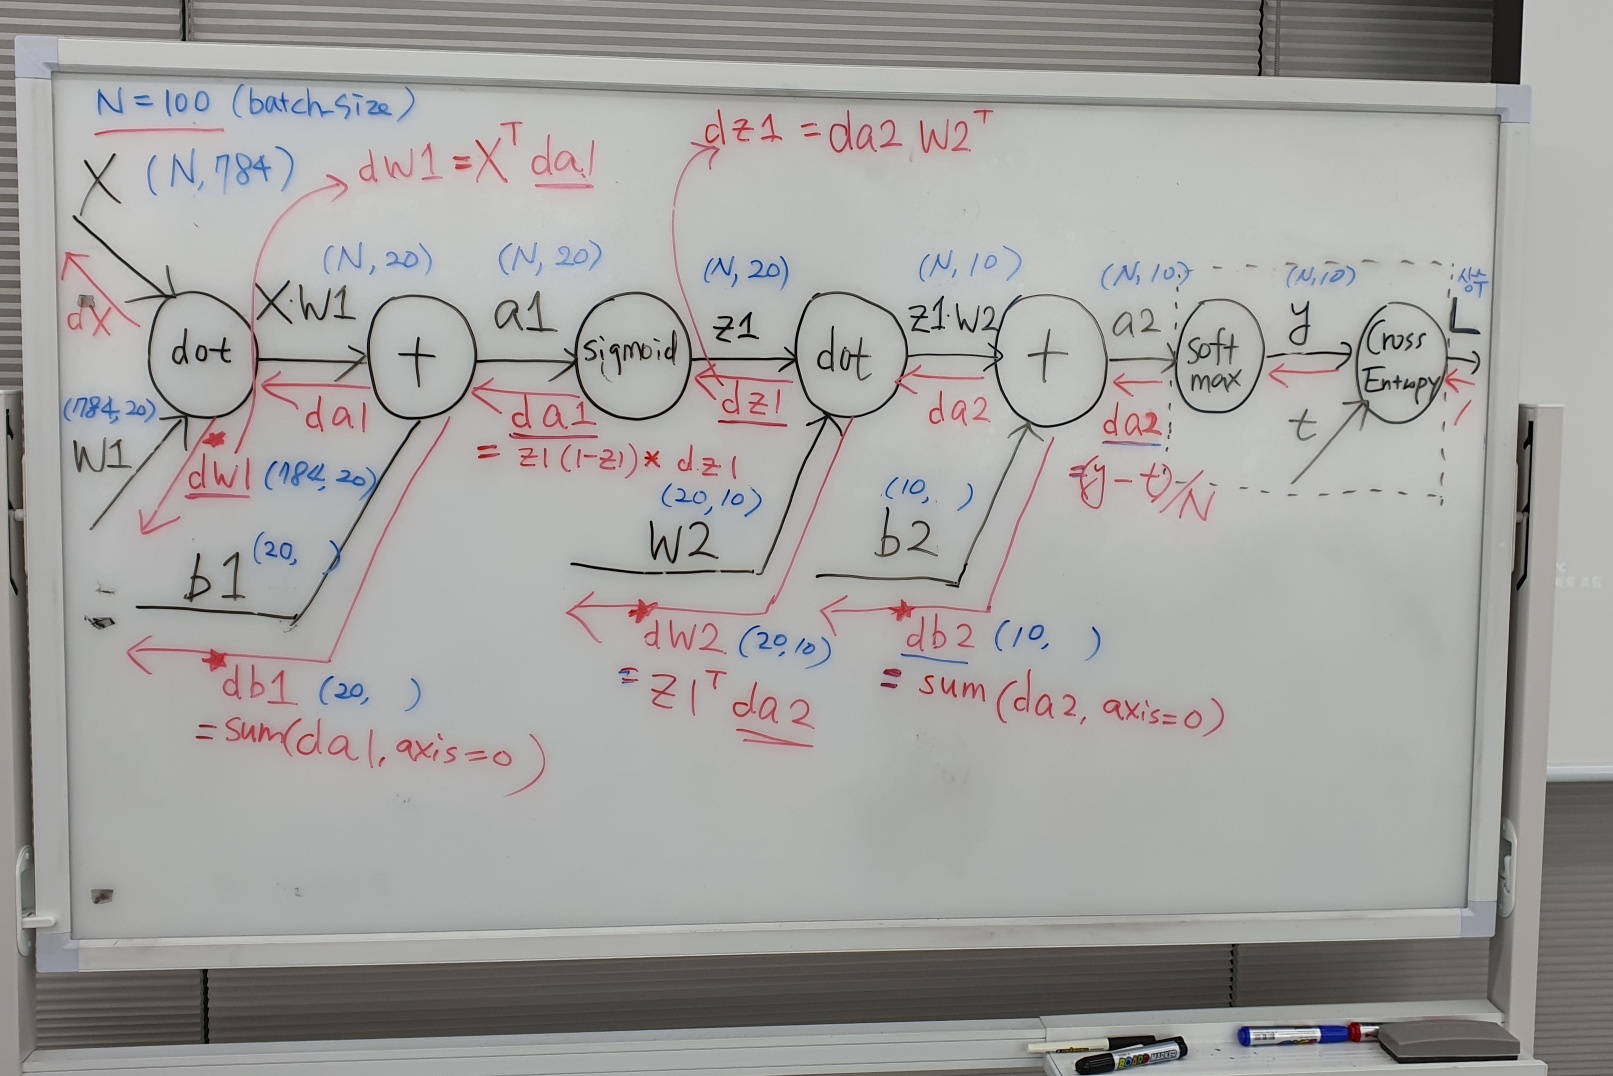 N = 100 (batch_size)
X (N, 784)
dW1 = X^T da1
dz1 = da2 W2^T
(N, 20)
(N, 20)
(N, 20)
(N, 10)
(N, 10)
(N, 10)
dX
dot
X·W1
+
a1
sigmoid
z1
dot
z1·W2
+
a2
soft
max
y
Cross
Entropy
L
da1
da1
= z1(1-z1)* dz1
dz1
da2
da2
= (y - t)/N
t
1
(784, 20)
W1
dW1 (784, 20)
b1 (20, )
(20, 10)
W2
(10, )
b2
db1 (20, )
= sum(da1, axis=0)
dW2 (20, 10)
= z1^T da2
db2 (10, )
= sum(da2, axis=0)
BOARD MARKER